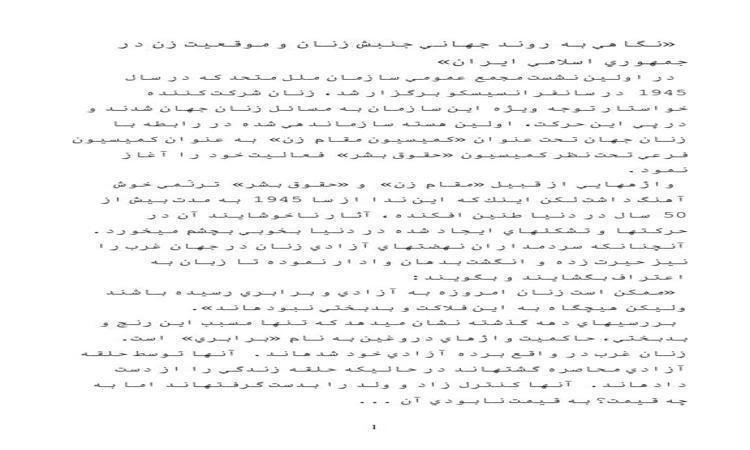 «نگاهي به روند جهاني جنبش زنان و موقعيت زن در
جمهوري اسلامي ايران»
در اولين نشست مجمع عمومي سازمان ملل متحد كه در سال
1945 در سانفرانسيسكو برگزار شد، زنان شركت‌كننده
خواستار توجه ويژه اين سازمان به مسائل زنان جهان شدند و
در پي اين حركت، اولين هسته سازماندهي شده در رابطه با
زنان جهان تحت عنوان «كميسيون مقام زن» به عنوان كميسيون
فرعي تحت نظر كميسيون «حقوق بشر» فعاليت خود را آغاز
نمود.
واژههايي از قبيل «مقام زن» و «حقوق بشر» ترنّمي خوش
آهنگ داشت لكن اينك كه اين ندا از سا 1945 به مدت بيش از
50 سال در دنيا طنين افكنده، آثار ناخوشايند آن در
حركتها و تشكلهاي ايجاد شده در دنيا بخوبي بچشم ميخورد.
آنچنانكه سردمداران نهضتهاي آزادي زنان در جهان غرب را
نيز حيرت زده و انگشت بدهان وادار نموده تا زبان به
اعتراف بگشايند و بگويند:
«ممكن است زنان امروزه به آزادي و برابري رسيده باشند
وليكن هيچگاه به اين فلاكت و بدبختي نبودهاند».
بررسيهاي دهه گذشته نشان ميدهد كه تنها مسبب اين رنج و
بدبختي، حاكميت واژهاي دروغين به نام «برابري» است.
زنان غرب در واقع برده آزادي خود شدهاند. آنها توسط حلقه
آزادي محاصره گشتهاند در حاليكه حلقه زندگي را از دست
دادهاند. آنها كنترل زاد و ولد را بدست گرفتهاند اما به
چه قيمت؟ به قيمت نابودي آن ...
1